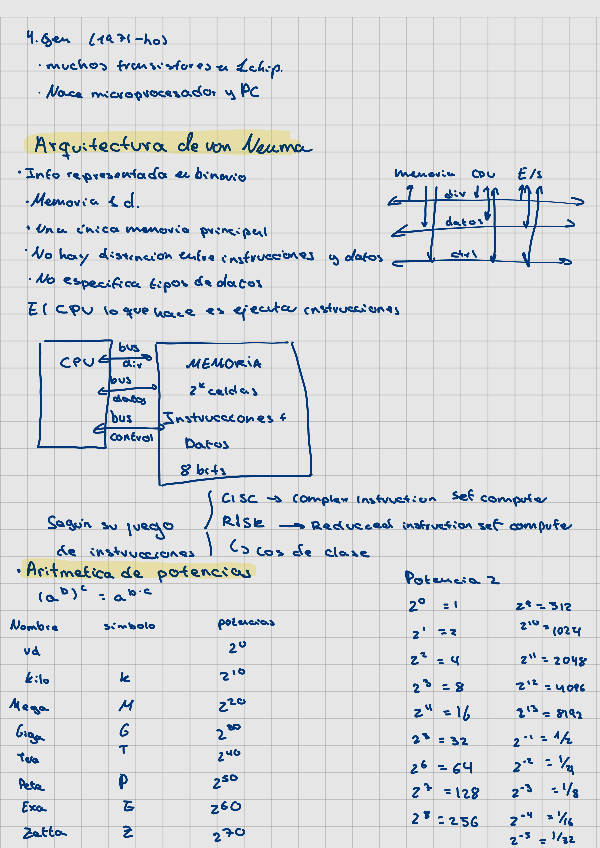 4. Gen (1971-ho)
· muchos transistores en 1 chip.
· Nace microprocesador y PC
Arquitectura de von Neuma
· Info representada en binario
· Memoria 1 d.
· Una única memoria principal
· No hay distincion entre instrucciones y datos
· No especifica tipos de datos
El CPU lo que hace es ejecuta instrucciones
memoria CPU E/S
div
datos
ctrl
CPU
bus
dir
bus
datos
bus
control
MEMORIA
2^k celdas
Instrucciones +
Datos
8 bits
Según su juego
de instrucciones
CISC → Complex instruction set compute
RISK → Reducced instruction set compute
↳ Los de clase
· Aritmetica de potencias
(a^b)^c = a^b·c
Nombre simbolo potencias
ud 2^0
kilo k 2^10
Mega M 2^20
Giga G 2^30
Tera T 2^40
Peta P 2^50
Exa E 2^60
Zetta Z 2^70
Potencia 2
2^0 = 1 2^9 = 512
2^1 = 2 2^10 = 1024
2^2 = 4 2^11 = 2048
2^3 = 8 2^12 = 4096
2^4 = 16 2^13 = 8192
2^5 = 32 2^-1 = 1/2
2^6 = 64 2^-2 = 1/4
2^7 = 128 2^-3 = 1/8
2^8 = 256 2^-4 = 1/16
2^-5 = 1/32